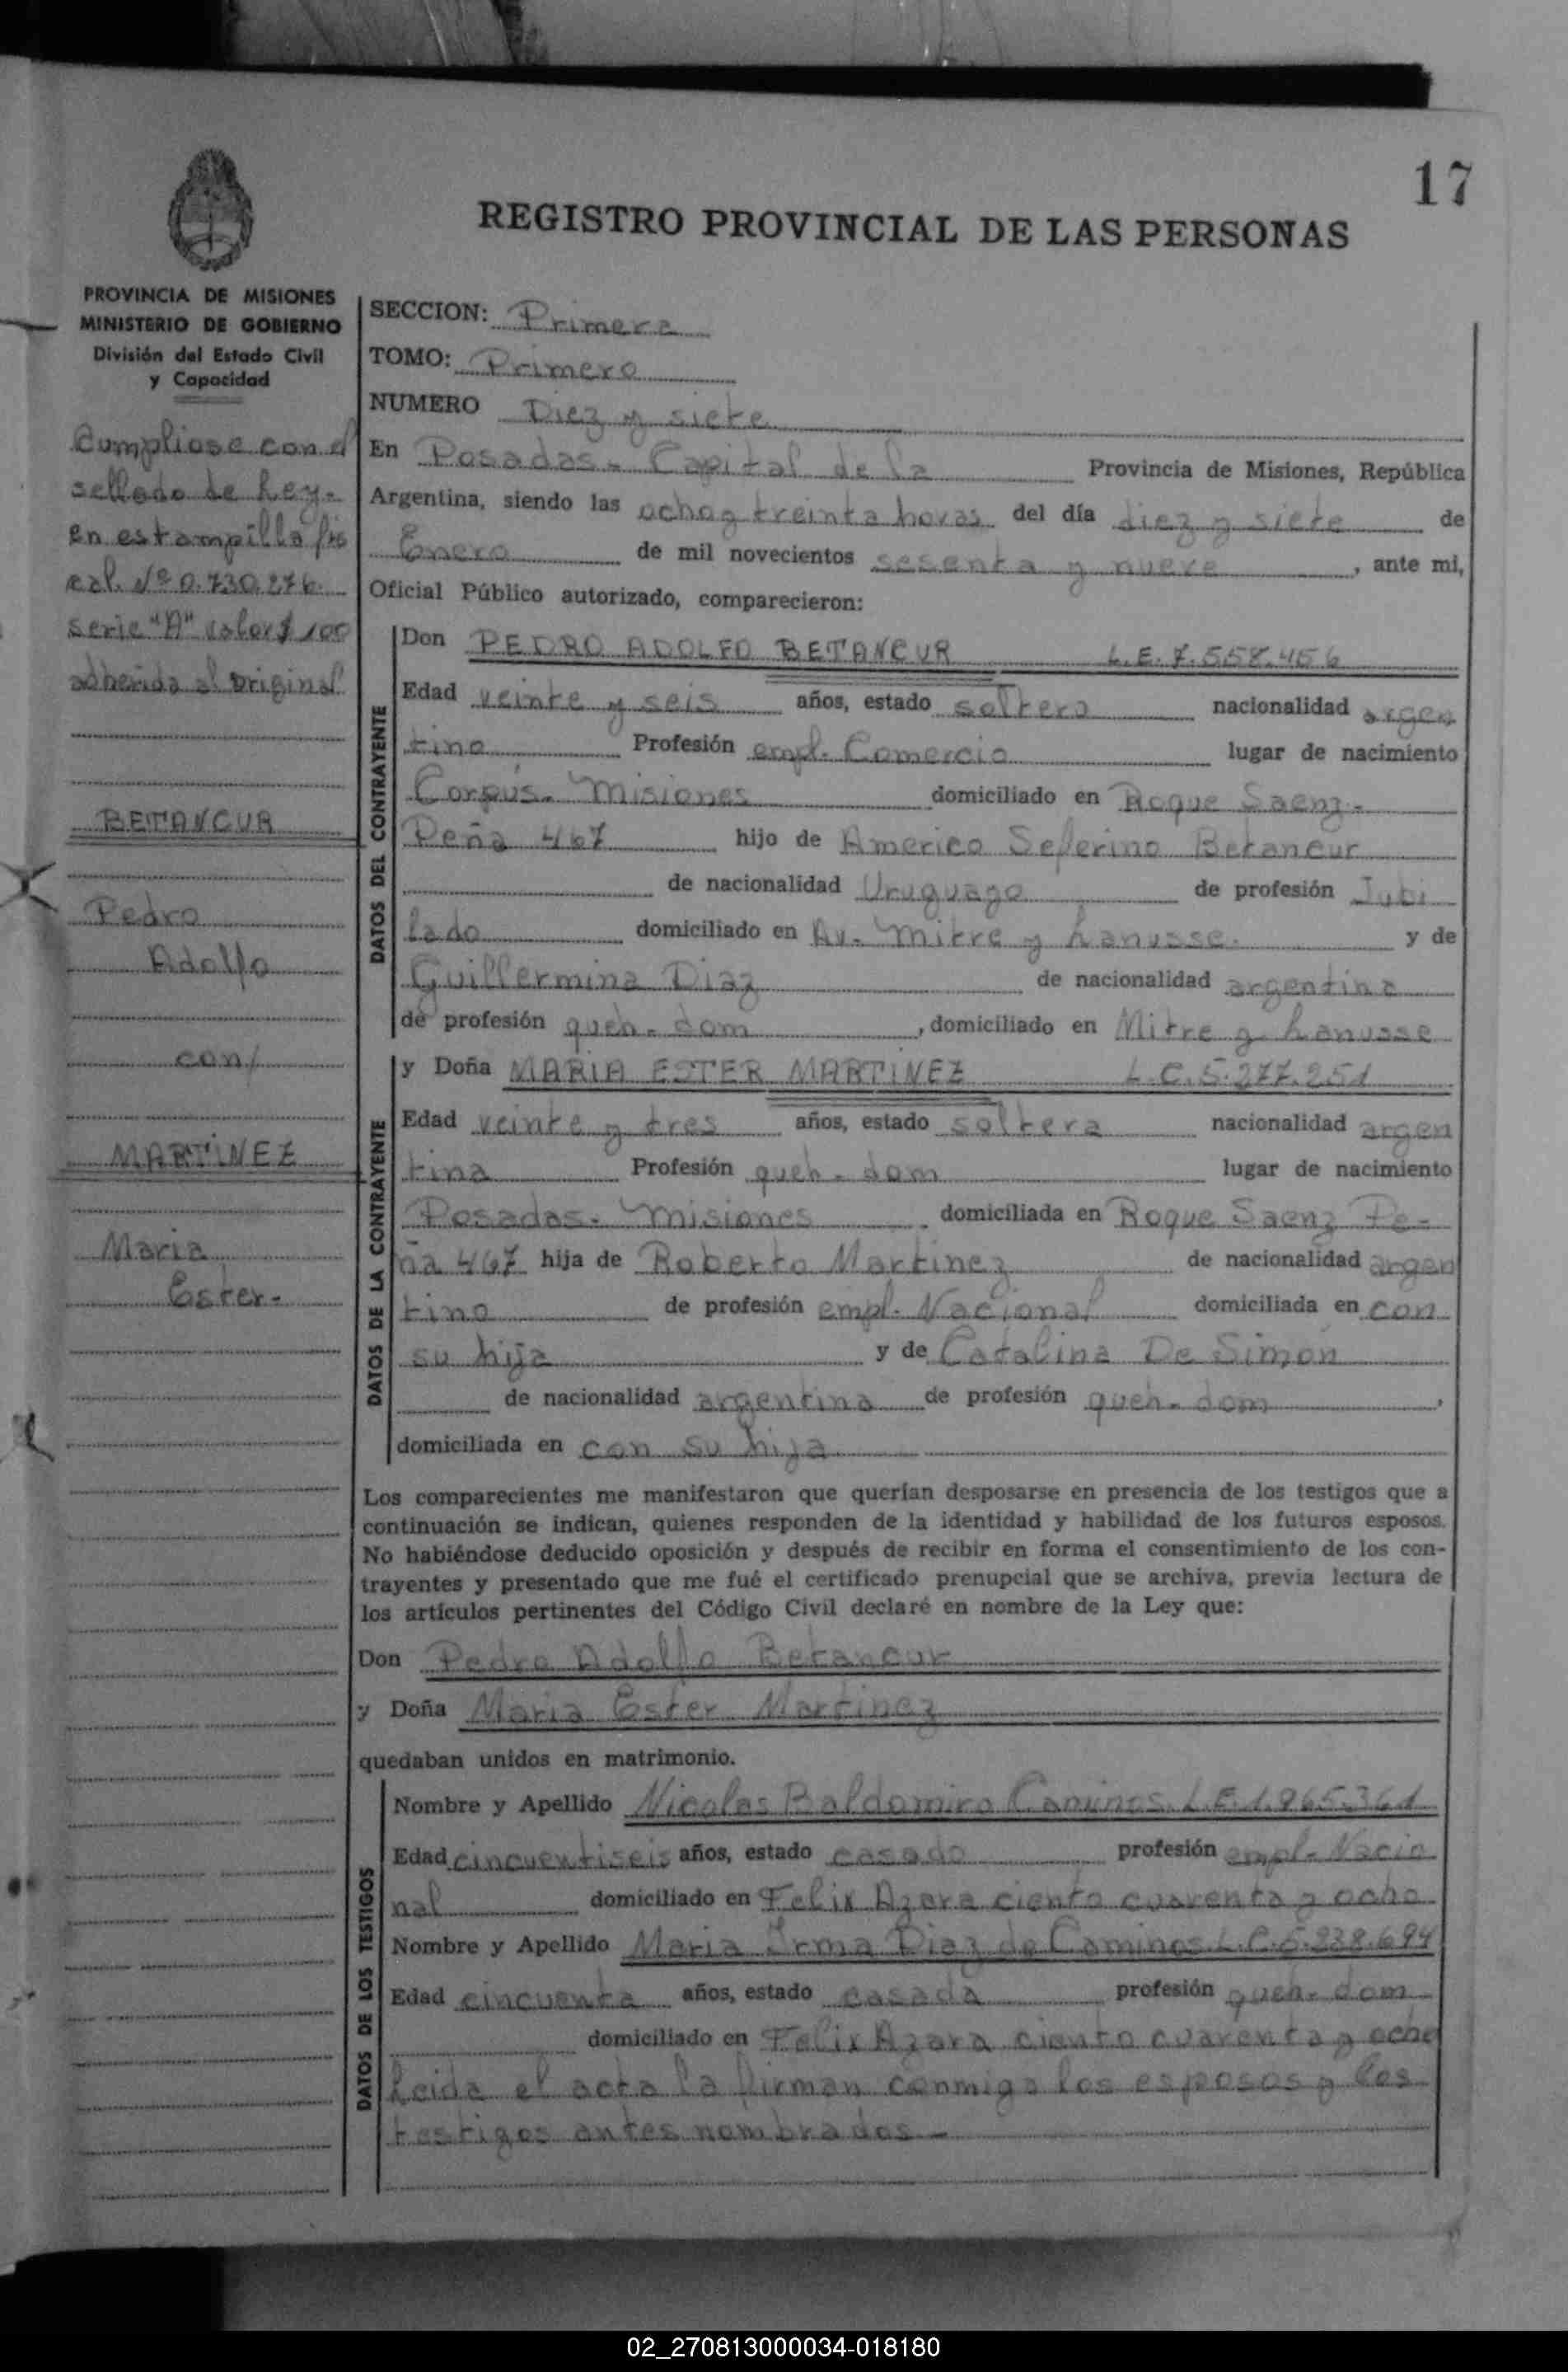 17
REGISTRO PROVINCIAL DE LAS PERSONAS
PROVINCIA DE MISIONES
MINISTERIO DE GOBIERNO
División del Estado Civil
y Capacidad
Cumpliose con el
sellado de Ley.-
en estampilla fis
cal. Nº 0.730.276.
serie "A" valor $ 100
adherida al original
BETANCUR
Pedro
Adolfo
con/
MARTINEZ
Maria
Ester.-
SECCION: Primera
TOMO: Primero
NUMERO Diez y siete
En Posadas - Capital de la Provincia de Misiones, República
Argentina, siendo las ocho y treinta horas del día diez y siete de
Enero de mil novecientos sesenta y nueve, ante mi,
Oficial Público autorizado, comparecieron:
DATOS DEL CONTRAYENTE
Don PEDRO ADOLFO BETANCUR L.E. 7.558.456
Edad veinte y seis años, estado soltero nacionalidad argen
tino Profesión empl. Comercio lugar de nacimiento
Corpus. Misiones domiciliado en Roque Saenz-
Peña 467 hijo de Americo Seferino Betancur
de nacionalidad Uruguayo de profesión Jubi
lado domiciliado en Av. Mitre y Lanusse. y de
Guillermina Diaz de nacionalidad argentina
de profesión queh. dom, domiciliado en Mitre y Lanusse
DATOS DE LA CONTRAYENTE
y Doña MARIA ESTER MARTINEZ L.C. 5.277.251
Edad veinte y tres años, estado soltera nacionalidad argen
tina Profesión queh. dom lugar de nacimiento
Posadas. Misiones domiciliada en Roque Saenz Pe-
ña 467 hija de Roberto Martinez de nacionalidad argen
tino de profesión empl. Nacional domiciliada en con
su hija y de Catalina De Simon
de nacionalidad argentina de profesión queh. dom,
domiciliada en con su hija
Los comparecientes me manifestaron que querían desposarse en presencia de los testigos que a
continuación se indican, quienes responden de la identidad y habilidad de los futuros esposos.
No habiéndose deducido oposición y después de recibir en forma el consentimiento de los con-
trayentes y presentado que me fué el certificado prenupcial que se archiva, previa lectura de
los artículos pertinentes del Código Civil declaré en nombre de la Ley que:
Don Pedro Adolfo Betancur
y Doña Maria Ester Martinez
quedaban unidos en matrimonio.
DATOS DE LOS TESTIGOS
Nombre y Apellido Nicolas Baldomiro Caminos L.E. 1.965.361
Edad cincuentiseis años, estado casado profesión empl. Nacio
nal domiciliado en Felix Azara ciento cuarenta y ocho
Nombre y Apellido Maria Irma Diaz de Caminos L.C. 5.238.694
Edad cincuenta años, estado casada profesión queh. dom
domiciliado en Felix Azara ciento cuarenta y ocho
Leida el acta la firman conmigo los esposos y los
testigos antes nombrados.-
02_270813000034-018180